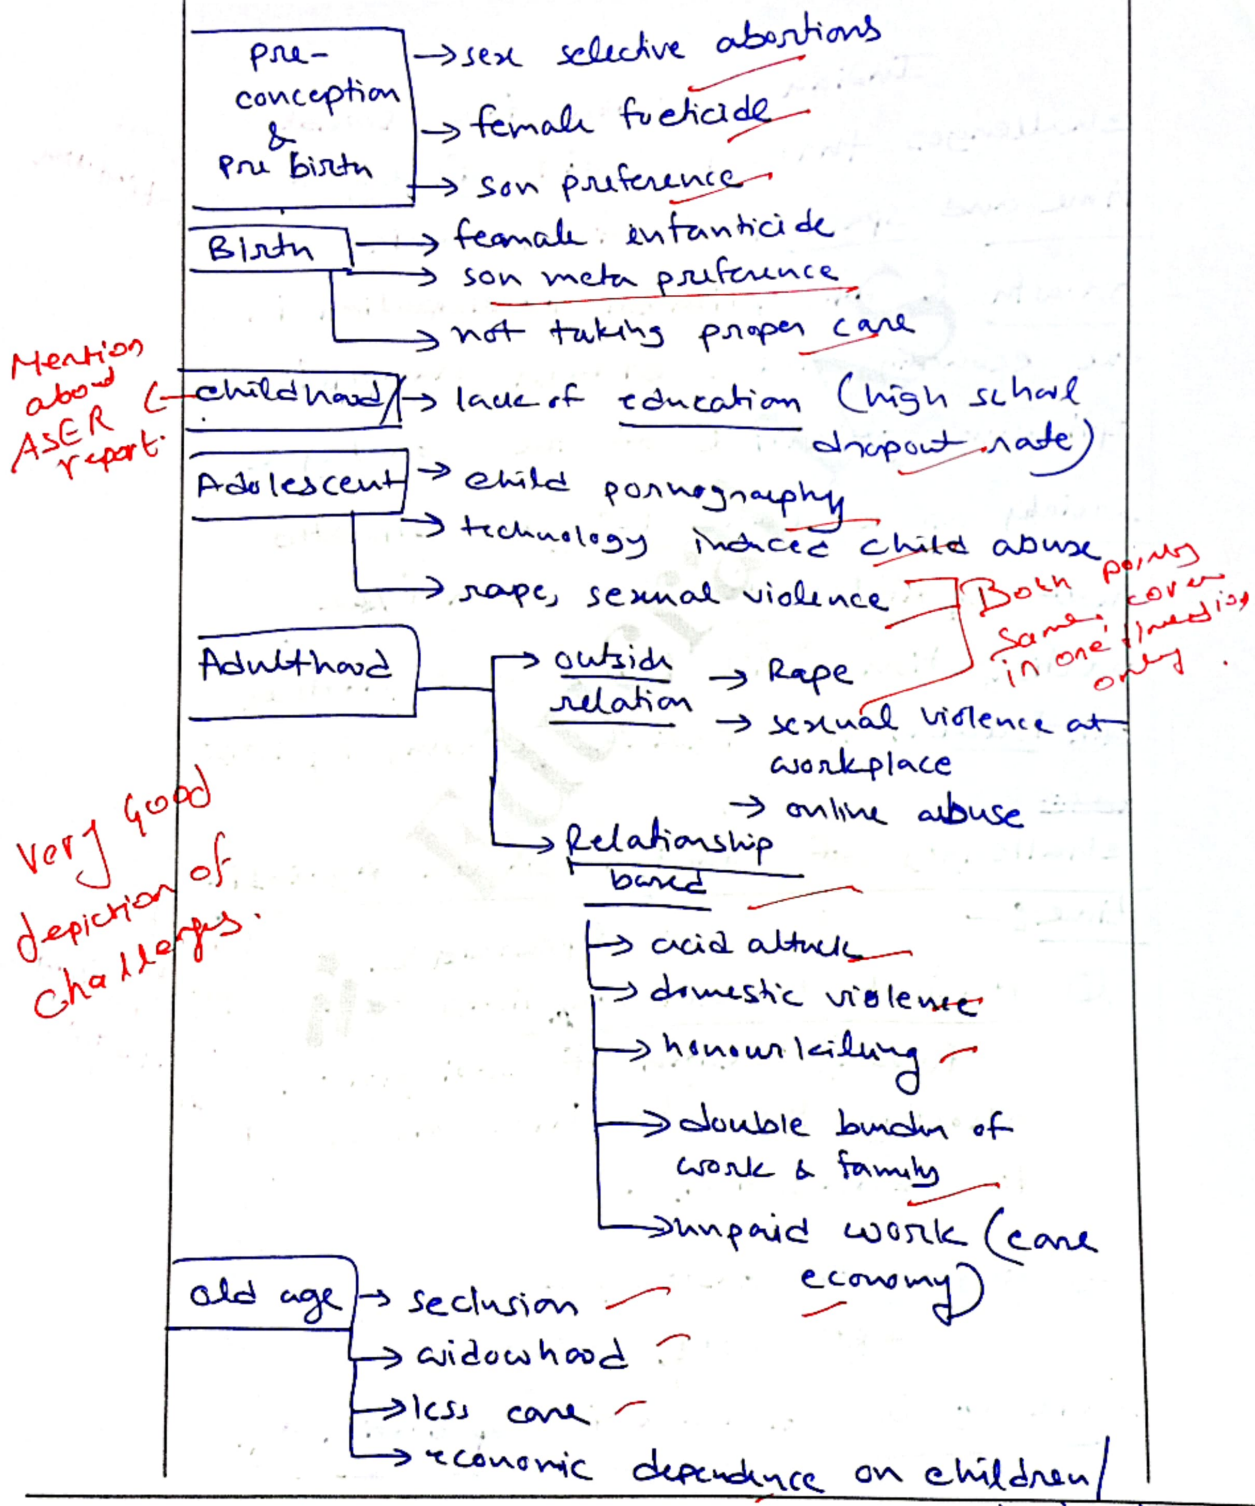 pre-
conception
&
Pre birth
→ sex selective abortions
→ female foeticide
→ son preference
Birth
→ feamale infanticide
→ son meta preference
→ not taking proper care
Mention
about
ASER
report.
childhood → lack of education (high school
dropout rate)
Adolescent → child pornography
→ technology induced child abuse
→ rape, sexual violence
Both points
same, cover
in one
only.
Adulthood
→ outside
relation
→ Rape
→ sexual violence at
workplace
→ online abuse
→ Relationship
based
Very Good
depiction of
challenges.
→ acid attack
→ domestic violence
→ honour killing
→ double burden of
work & family
→ unpaid work (care
economy)
old age → seclusion
→ widowhood
→ less care
→ economic dependence on children/